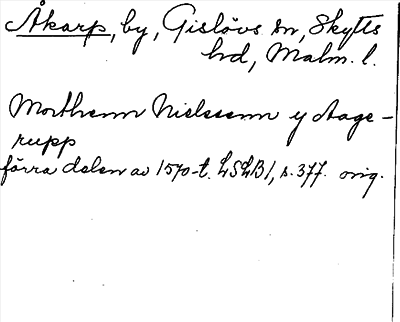 Åkarp, by, Gislövs sn, Skytts
hd, Malm. l.
Morthenn Nielssenn y Aage-
rupp
förra delen av 1570-t. LSLB 1, s. 377. orig.